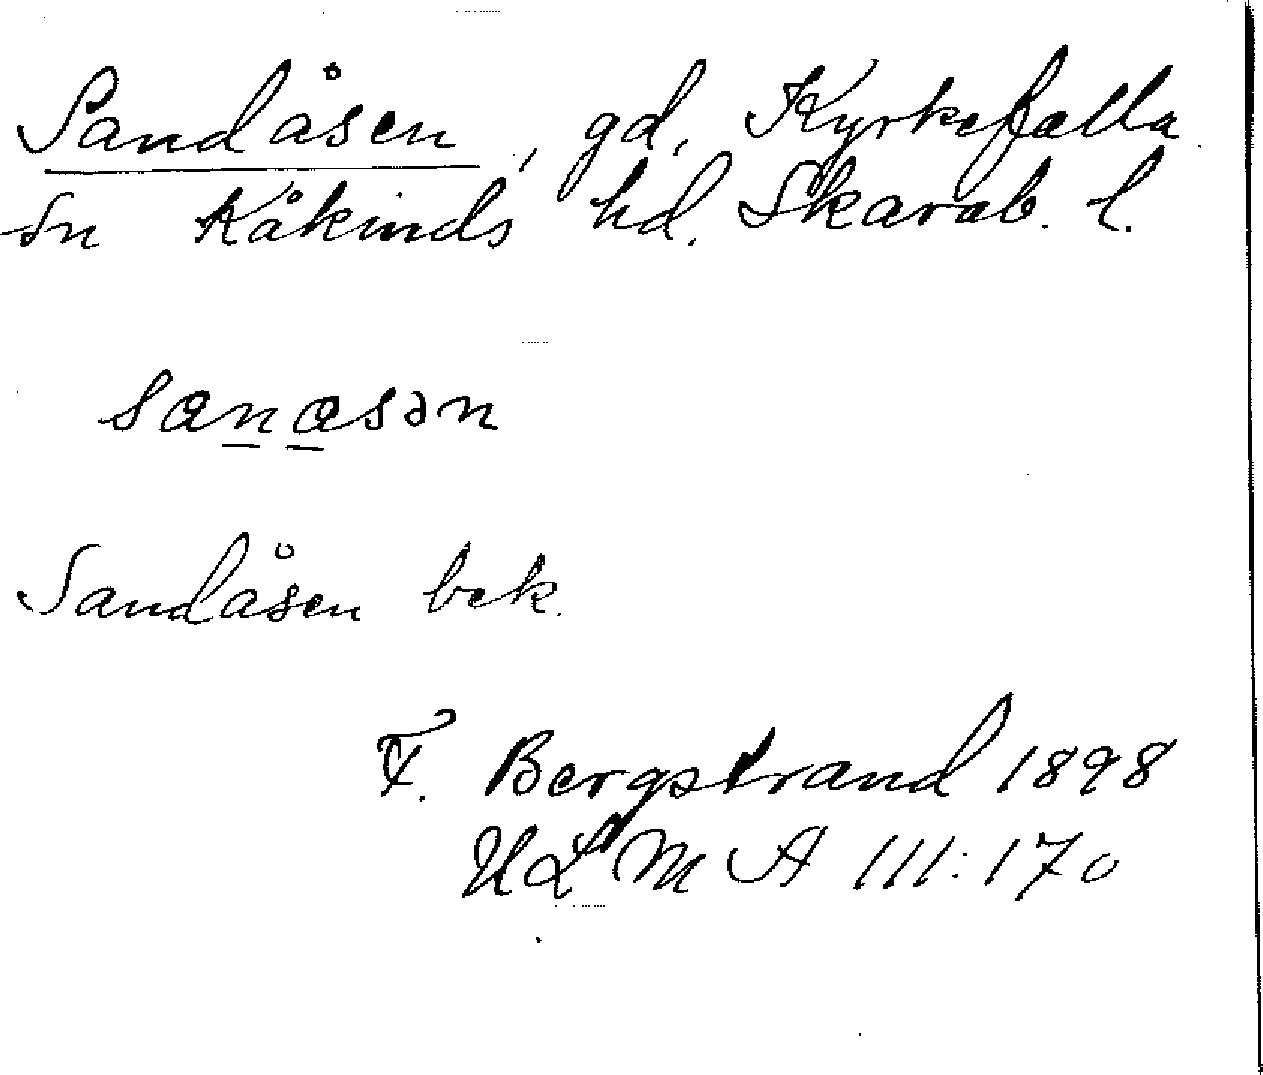 Sandåsen, gd, Kyrkefalla
sn Kåkinds hd. Skarab. l.
sanasən
Sandåsen bek.
F. Bergstrand 1898
ULMA 111:170